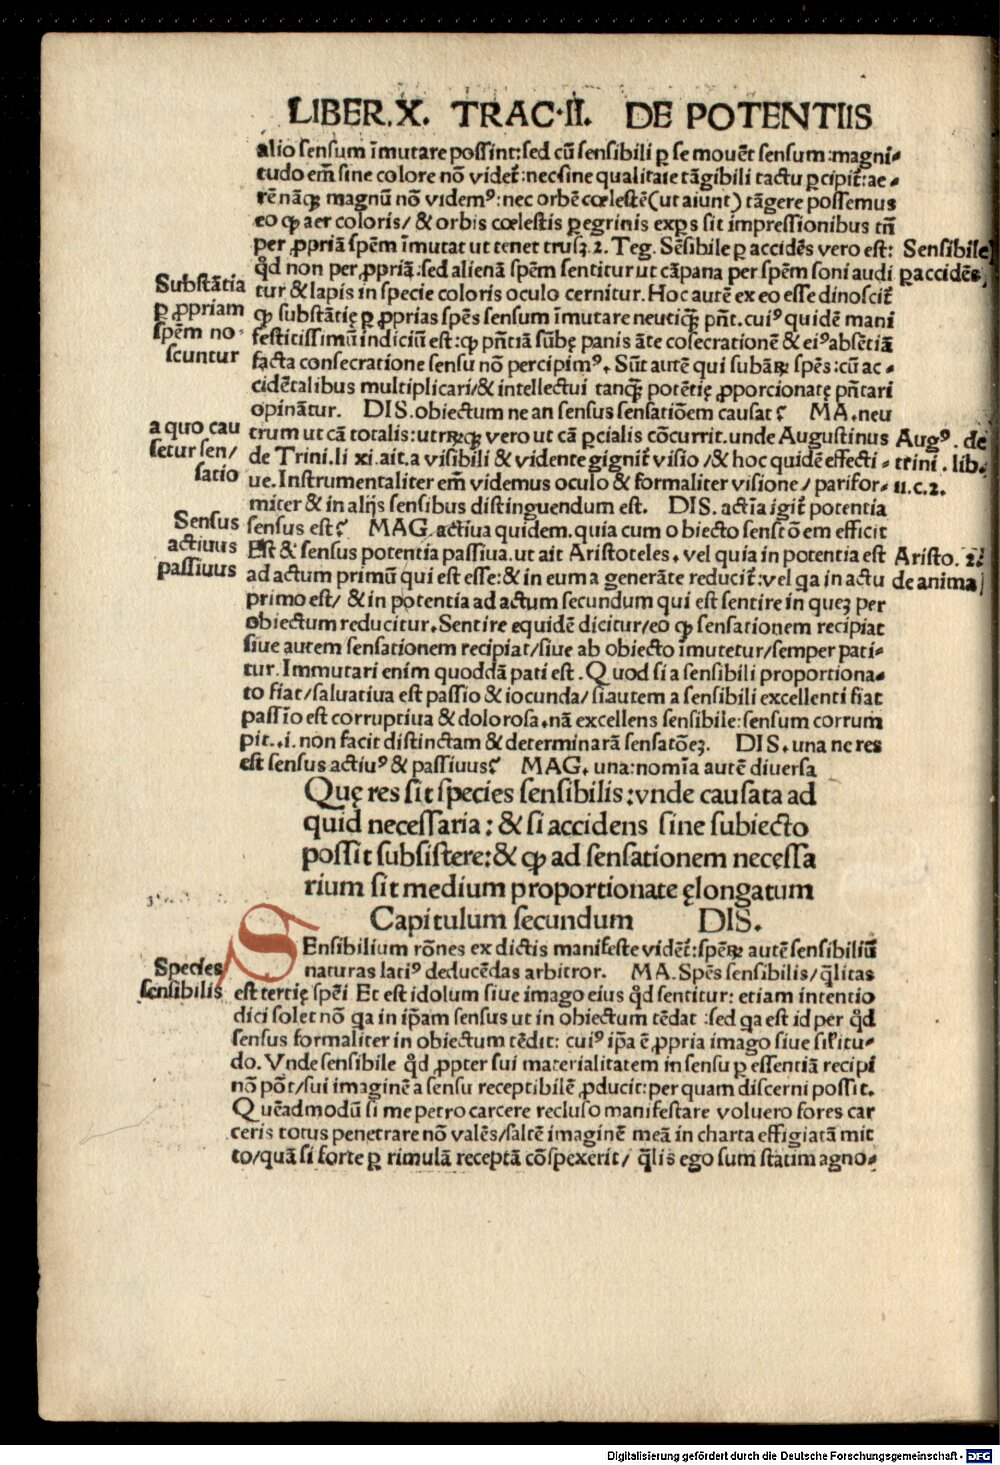 LIBER.X. TRAC.II. DE POTENTIIS
alio sensum īmutare possint:sed cū sensibili ꝑ se mouēt sensum:magni⸗
tudo em̄ sine colore nō videt̄:nec sine qualitate tāgibili tactu ꝑcipit̄:ae⸗
rē nāqꝫ magnū nō videmꝰ:nec orbē cœlestē(ut aiunt) tāgere possemus
eo ꝙ aer coloris/ & orbis cœlestis ꝑegrinis exꝑs sit impressionibus tn̄
per ꝓpriā spēm īmutat ut tenet trusꝫ.2. Teg. Sēsibile ꝑ accidēs vero est:
Sensibile
qd̄ non per ꝓpriā:sed alienā spēm sentitur ut cāpana per spēm soni audi
ꝑaccidēs
Substātia
tur & lapis in specie coloris oculo cernitur. Hoc autē ex eo esse dinoscit̄
ꝑ ꝓpriam
ꝙ substātię ꝑ ꝓprias spēs sensum īmutare neutiqꝫ pn̄t. cuiꝰ quidē mani
spēm no⸗
festissimū indiciū est: ꝙ pn̄tiā sūbę panis āte cōsecrationē & eiꝰ absētiā
scuntur
facta consecratione sensu nō percipimꝰ. Sūt autē qui subāꝝ spēs:cū ac⸗
cidētalibus multiplicari/& intellectui tanqꝫ potētię ꝓporcionatę pn̄tari
opinātur. DIS. obiectum ne an sensus sensatiōem causat? MA. neu
a quo cau
trum ut cā totalis:utrūqꝫ vero ut cā ꝑcialis cōcurrit. unde Augustinus
Augꝰ. de
setur sen/
de Trini. li xi. ait. a visibili & vidente gignit̄ visio /& hoc quidē effecti⸗
trini. lib.
satio
ue. Instrumentaliter em̄ videmus oculo & formaliter visione/ parifor⸗
11.c.2.
miter & in alijs sensibus distinguendum est. DIS. actīa igit̄ potentia
Sensus
sensus est? MAG. actiua quidem. quia cum obiecto senstōem efficit
actiuus
Est & sensus potentia passiua. ut ait Aristoteles. vel quia in potentia est
Aristo. 2.
passiuus
ad actum primū qui est esse: & in eum a generāte reducit̄:vel qa in actu
de anima
primo est/ & in potentia ad actum secundum qui est sentire in queꝫ per
obiectum reducitur. Sentire equidē dicitur/eo ꝙ sensationem recipiat
siue autem sensationem recipiat/siue ab obiecto īmutetur/semper pati⸗
tur. Immutari enim quoddā pati est. Quod si a sensibili proportiona⸗
to fiat/saluatiua est passio & iocunda/ si autem a sensibili excellenti fiat
passio est corruptiua & dolorosa. nā excellens sensibile: sensum corrum
pit. .i. non facit distinctam & determinatā sensatōeꝫ. DIS. una ne res
est sensus actiuꝰ & passiuus? MAG. una:nomīa autē diuersa
Quę res sit species sensibilis: vnde causata ad
quid necessaria: & si accidens sine subiecto
possit subsistere: & ꝙ ad sensationem necessa
rium sit medium proportionate ęlongatum
Capitulum secundum DIS.
SEnsibilium rōnes ex dictis manifeste vidēt̄:spēꝝ autē sensibiliū
Species
naturas latiꝰ deducēdas arbitror. MA. Spēs sensibilis/ qlitas
sensibilis
est tertię spēi Et est idolum siue imago eius qd̄ sentitur: etiam intentio
dici solet nō qa in ip̄am sensus ut in obiectum tēdat :sed qa est id per qd̄
sensus formaliter in obiectum tēdit: cuiꝰ ip̄a ē ꝓpria imago siue sil̄itu⸗
do. Vnde sensibile qd̄ ꝓpter sui materialitatem in sensu ꝑ essentiā recipi
nō pōt/sui imaginē a sensu receptibilē ꝓducit: per quam discerni possit.
Quēadmodū si me petro carcere recluso manifestare voluero fores car
ceris totus penetrare nō valēs/saltē imaginē meā in charta effigiatā mit
to/quā si forte ꝑ rimulā receptā cōspexerit/ qlis ego sum statim agno⸗
Digitalisierung gefördert durch die Deutsche Forschungsgemeinschaft - DFG